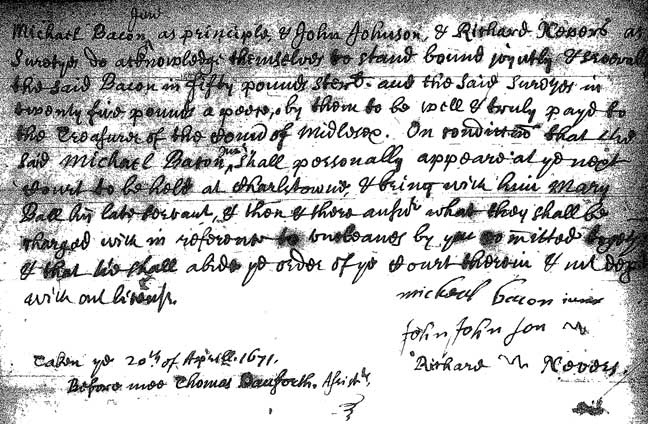 Junr
Michael Bacon, as principle & John Johnson, & Richard Nevers as
Suretyes do acknowledge themselves to stand bound joyntly & severally
the said Bacon in fifty pounds sterl. and the said Suretyes in
twenty five pounds a peece, by them to be well & truly payd to
the Treasurer of the County of Midlsex. On condition that the
said Michael Bacon Junr shall personally appeare at ye next
Court to be held at Charlstowne, & bring with him Mary
Ball his late servant, & then & there answr what they shall be
charged with in reference to uncleanes by ym Comitted
& that he shall abide ye order of ye Court therein & not dept
with out licence.
micheal bacon iuner
John John son
Richard Nevers.
Taken ye 20th of Aprill. 1671.
Before mee Thomas Danforth. Assistt.